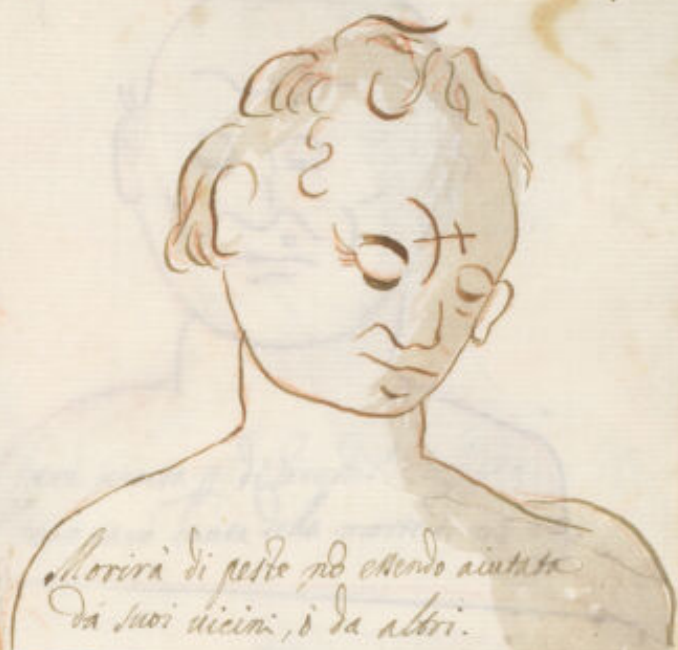 Morirà di peste nõ essendo aiutata
da suoi vicini, ò da altri.